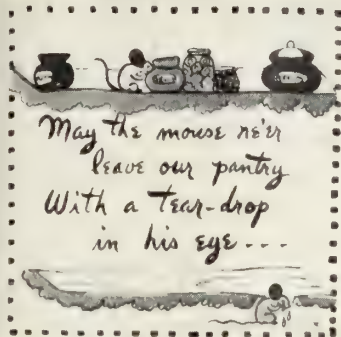 May the mouse ne'er
leave our pantry
With a tear-drop
in his eye---